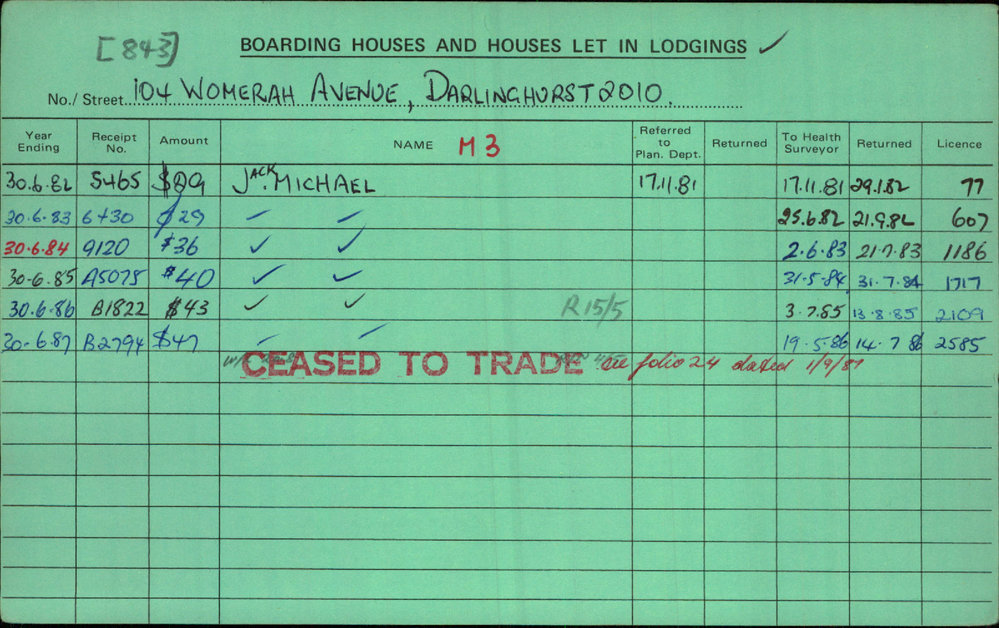 [843]
BOARDING HOUSES AND HOUSES LET IN LODGINGS ✓
No./Street 104 WOMERAH AVENUE, DARLINGHURST 2010.
Year Ending Receipt No. Amount NAME M3 Referred to Plan. Dept. Returned To Health Surveyor Returned Licence
30.6.82 5465 JACK MICHAEL 17.11.81 17.11.81 29.1.82 77
30.6.83 6430 $29 — — 25.6.82 21.9.82 607
30.6.84 9120 $36 ✓ ✓ 2.6.83 21.7.83 1186
30-6.85 A5075 $40 ✓ ✓ 31-5-84 31.7.84 1717
30.6.86 B1822 $43 ✓ ✓ R15/5 3.7.85 13.8.85 2109
30-6.87 B2794 $47 — — 19.5.86 14.7.86 2585
CEASED TO TRADE see folio 24 dated 1/9/87